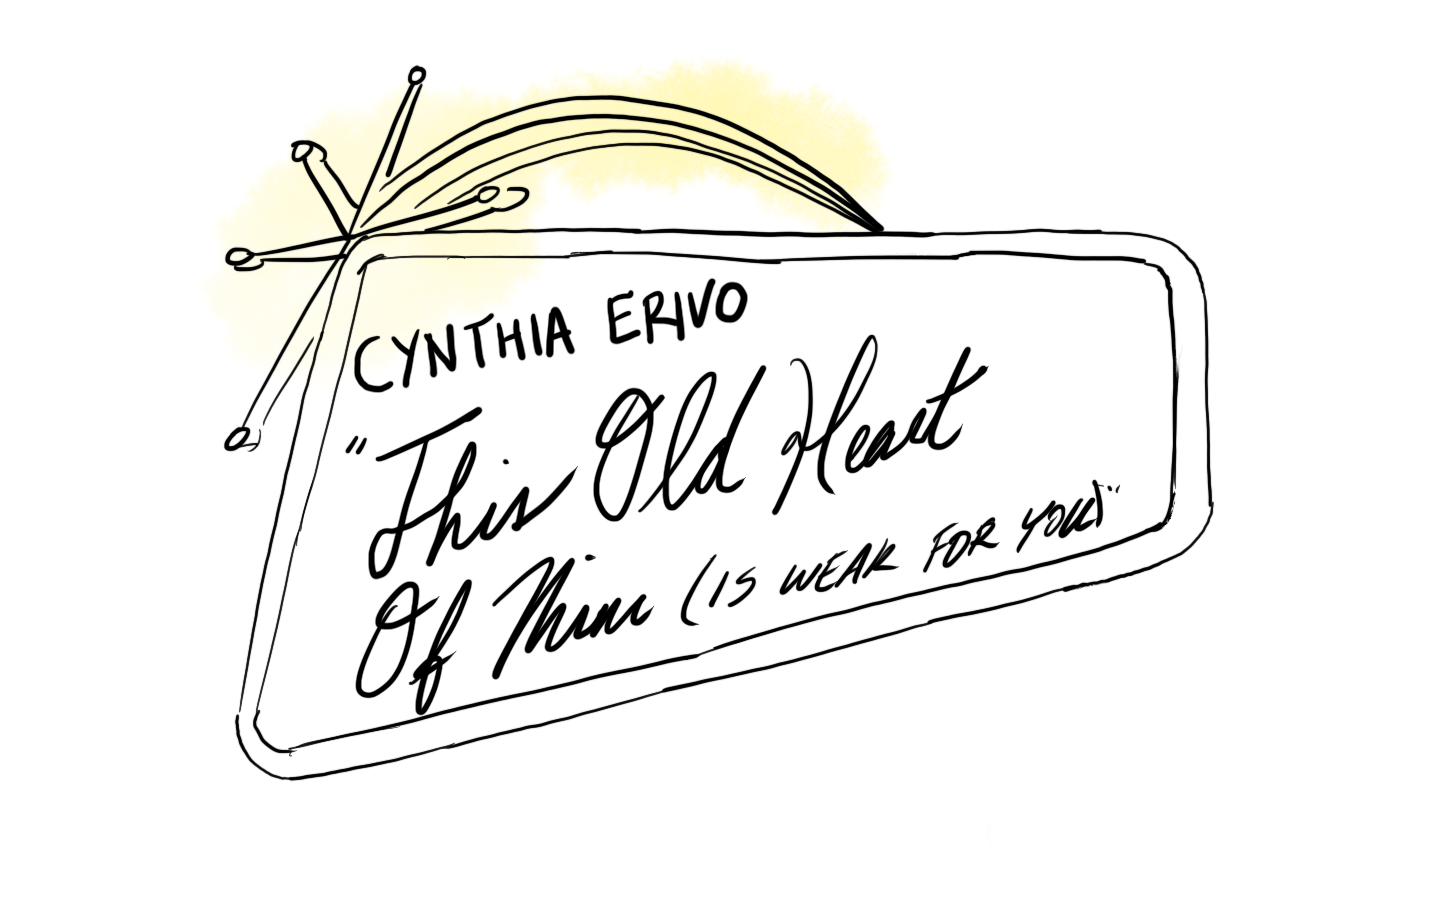 CYNTHIA ERIVO
"This Old Heart
Of Mine (IS WEAK FOR YOU)"